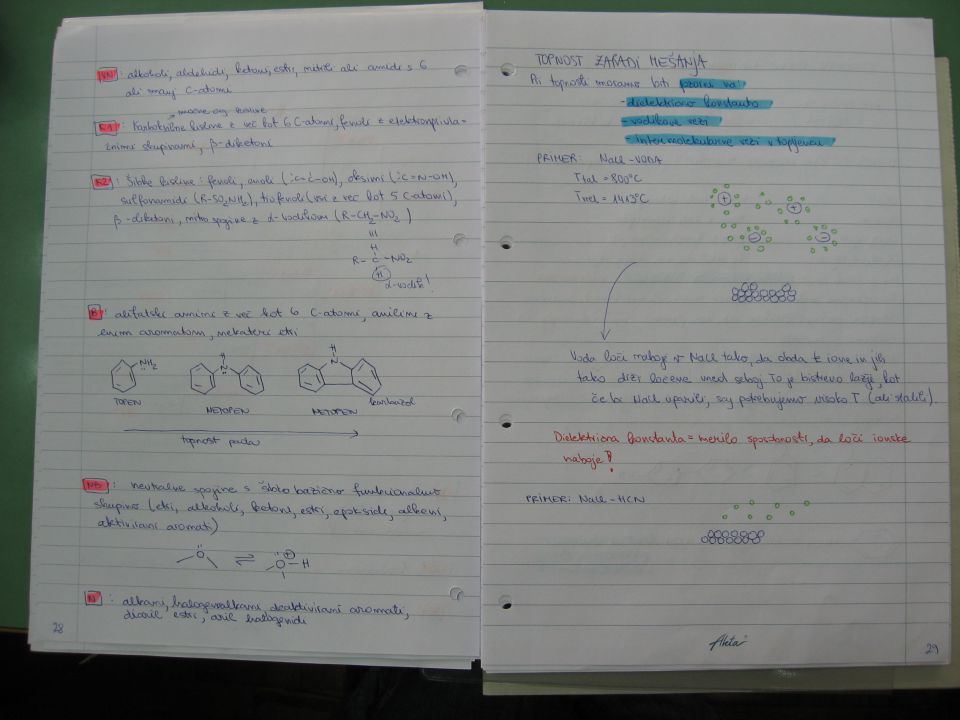 : alkoholi, aldehidi, ketoni, estri, nitrili ali amidi s 6
ali manj C-atomi
močne org. kisline
K1: Karboksilne kisline z več kot 6 C-atomi, fenoli z elektronprivla-
čnimi skupinami, β-diketoni
K2: Šibke kisline: fenoli, enoli (C=C-OH), oksimi (C=N-OH),
sulfonamidi (R-SO2NH2), tiofenoli (vsi z več kot 5 C-atomi),
β-diketoni, nitro spojine z α-vodikom (R-CH2-NO2)
H
R-C-NO2
H
α-vodik!
B: alifatski amini z več kot 6 C-atomi, anilini z
enim aromatom, nekateri etri
NH2
H
N
H
N
TOPEN
NETOPEN
NETOPEN
karbazol
topnost pada
NB: nevtralne spojine s šibko bazično funkcionalno
skupino (etri, alkoholi, ketoni, estri, epoksidi, alkeni,
aktivirani aromati)
O ⇌ O⊕-H
N: alkani, halogenalkani, deaktivirani aromati,
diaril estri, aril halogenidi
28
TOPNOST ZARADI MEŠANJA
Pri topnosti moramo biti pozorni na:
- dielektrično konstanto
- vodikove vezi
- intermolekularne vezi v topljencu
PRIMER: NaCl-VODA
Ttal = 800°C
Tvrel = 1413°C
+
+
-
-
Voda loči naboje v NaCl tako, da obda ione in jih
tako drži ločene med seboj. To je bistveno lažje, kot
če bi NaCl uparili, saj potrebujemo visoko T (ali stalili).
Dielektrična konstanta = merilo sposobnosti, da loči ionske
naboje!
PRIMER: NaCl-HCN
29